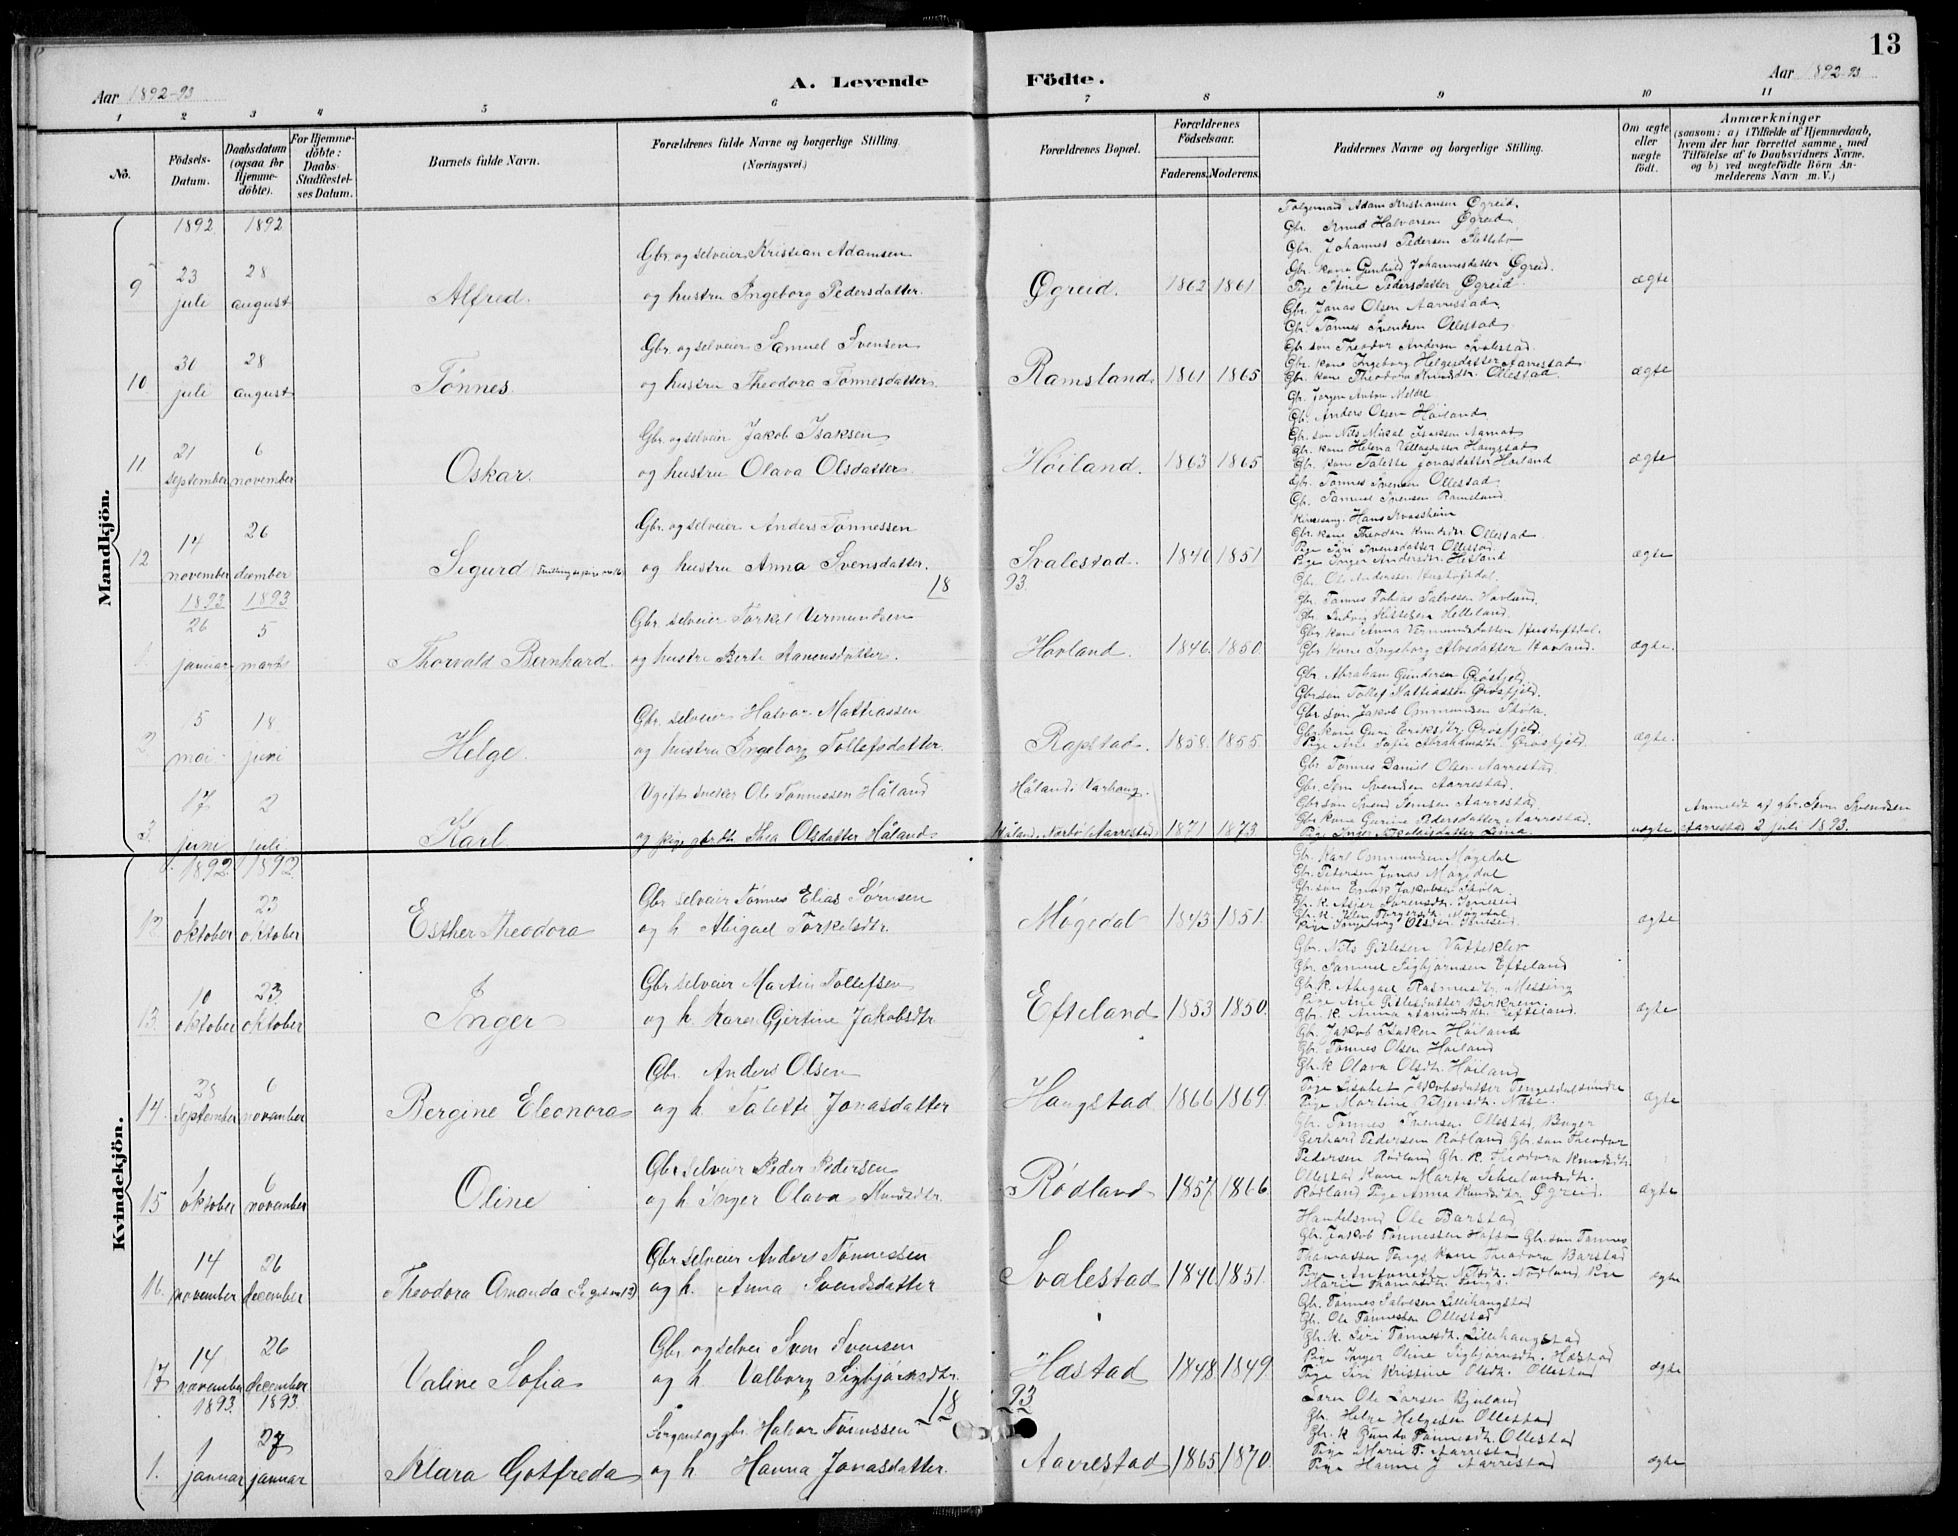 13
Aar 1892-93
A. Levende
Födte.
Aar 1892-93
1 2 3 4 5 6 7 8 9 10 11
No.
Födsels-Datum.
Daabsdatum (ogsaa for Hjemmedöbte).
For Hjemmedöbte: Daabs Stadfestelses Datum.
Barnets fulde Navn.
Forældrenes fulde Navne og borgerlige Stilling (Næringsvei.)
Forældrenes Bopæl.
Forældrenes Födselsaar.
Faderens. Moderens.
Faddernes Navne og borgerlige Stilling.
Om ægte eller uægte födt.
Anmærkninger
(saasom: a) i Tilfælde af Hjemmedaab, hvem der har forrettet samme, med Tilföielse af to Daabsvidners Navne, og b) ved uægtefödte Börn Anmelderens Navn m. V.)
Mandkjön.
1892 1892
9 23 juli 28 august Alfred.
Gbr. og selveier Kristian Adamsen
og hustru Ingeborg Pedersdatter.
Øgreid. 1862 1861
Adam Kristiansen Øgreid.
Gbr. Knud Halvorsen Øgreid
Gbr. Johannes Pedersen Slettebø
Gbr. kone Gunhild Johannesdatter Øgreid.
Pige Stine Pedersdatter Øgreid.
ægte
10 30 juli 28 august Tønnes
Gbr. og selveier Samuel Svensen
og hustru Theodora Tønnesdatter.
Ramsland. 1861 1865
Gbr. Jonas Olsen Aarrestad
Gbr. Tønnes Svendsen Ollestad.
Gbr. søn Theodor Andersen Svalestad.
Gbr. kone Ingeborg Helgesdatter Aarrestad
Gbr. kone Theodora Knudsdtr. Ollestad
ægte
11. 21 september 6 november Oskar.
Gbr. og selveier Jakob Isaksen
og hustru Olava Olsdatter
Høiland. 1863 1865
Gbr. Jørgen Anton
Gbr. Anders Olsen Høiland
Gbr. søn Nils Mikal Isaksen
Gbr. kone Helena Haugstad
Gbr. kone Talette Jonasdatter Høiland
ægte
12 14 november 26 december Sigurd
Gbr. og selveier Anders Tønnessen
og hustru Anna Svensdatter.
Svalestad. 1840 1851
Gbr. Tønnes Svensen Ollestad
Gbr. Samuel Svensen Ramsland
Kirkesang. Hans Kvassheim
Gbr. kone Theodora Knudsdtr. Ollestad
Pige Siri Svensdatter Ollestad
Pige Inger Andersdtr.
ægte
1893 1893
18 93.
1 26 januar 5 marts Thorvald Bernhard.
Gbr. selveier Tørkel Vermundsen
og hustru Berte Aanensdatter.
Hovland. 1846. 1850.
Gbr. Ole Anderssen
Gbr. Tønnes Tobias Salvesen Hovland.
Gbr. Ludvig Helleland.
Gbr. kone Anna Vermundsdatter
Gbr. kone Ingeborg Alvsdatter Hovland.
ægte.
2 5 mai 18 juni Helge.
Gbr. selveier Halvor Mattiassen
og hustru Ingeborg Tollefsdatter
Rapstad. 1858. 1855.
Gbr. Abraham Gundersen Grøsfjeld
Gbr. søn Tollef Mattiassen Grøsfjeld.
Gbr. søn Jakob Ommundsen Skola.
Gbr. kone Guri Eriksdtr. Grøsfjeld.
Pige Ane Sofie Abrahamsdtr. Grøsfjeld.
ægte.
3. 17 juni 2 juli Karl
Ugift snekker Ole Tønnessen Håland
og pige Thea Olsdatter Håland
Håland, Varhaug.
Håland, Nærbø (Aarrestad) 1871 1873
Gbr. Tønnes Daniel Olsen Aarrestad.
Gbr. Sem Svendsen Aarrestad.
Gbr. søn Svend Semsen Aarrestad.
Gbr. kone Gurine Pedersdatter Aarrestad.
Pige Inger Lima.
uægte
Anmeldt af gbr. Sem Svendsen
Aarrestad 2 juli 1893.
Kvindekjön.
1892 1892
12 1 oktober 23 oktober Esther Theodora
Gbr. selveier Tønnes Elias Sørnsen
og h. Abigael Torkelsdtr.
Møgedal 1843 1851.
Gbr. Karl Ommundsen Møgedal
Gbr. Petersen Jonas Møgedal
Gbr. søn Enok Jakobsen Skola
ægte
13. 10 oktober 23 oktober Inger
Gbr. selveier Martin Tollefsen
og h. Karen Gjertine Jakobsdtr
Efteland 1853 1850.
Gbr. Nils Gitlesen
Gbr. Samuel Sigbjørnsen Efteland
Gbr. k. Abigael Rasmusdtr. Messing
Pige Ane Gitlesdatter Birkrem.
Gbr. k. Anna Efteland.
ægte
14. 25 september 6 november Bergine Eleonora
Gbr. Anders Olsen
og h. Talette Jonasdatter
Haugstad 1866 1869.
Gbr. Jakob Isaksen Høiland
Gbr. Tønnes Olsen Høiland
Gbr. k. Olava Olsdtr. Høiland
Pige Lisabet Jakobsdatter Tengesdal
Pige Martine
ægte
15 1 oktober 6 november Oline
Gbr. selveier Peder Pedersen
og h. Inger Olava Knudsdtr.
Rødland 1857 1866
Gbr. Tønnes Svensen Ollestad, Bruger
Gerhard Pedersen Rødland Gbr. søn Theodor
Pedersen Rødland Gbr. k. Theodora Knudsdtr.
Ollestad Kone Marta
Rødland Pige Anna Knudsdtr. Øgreid.
ægte
16. 14 november 26 december Theodora Amanda
Gbr. selveier Anders Tønnessen
og h. Anna Svendsdatter
Svalestad 1840 1851.
Handelsmd. Ole Barstad
Gbr. Jakob Tønnessen Gbr. søn Tønnes
Thomassen Tengs Kone Theodora Barstad
Pige Antonette Nilsdtr. Nodland Pige
Marie Thomasdtr. Tengs.
ægte
17 14 november 26 december Valine Sofia
Gbr. og selveier Sven Svensen
og h. Valborg Sigbjørnsdtr.
Hæstad 1848. 1849.
Gbr. Tønnes Salvesen Lillehaugstad
Gbr. Ole Tønnessen Ollestad
Gbr. k. Siri Tønnesdtr. Lillehaugstad
Pige Inger Oline Sigbjørnsdtr. Hæstad
Pige Siri Kristine Olsdtr. Ollestad
ægte
1893. 1893
18 93
1. 1 januar 27 januar Klara Gotfreda
Sergeant og gbr. Halvor Tønnessen
og h. Hanna Jonasdatter.
Aarrestad 1865 1870.
Lærer Ole Larsen Bjuland
Gbr. Helge Helgesen Ollestad
Gbr. k. Gunda Tønnesdtr. Ollestad
Pige Marie T. Aarrestad
Pige Hanne J. Aarrestad
ægte